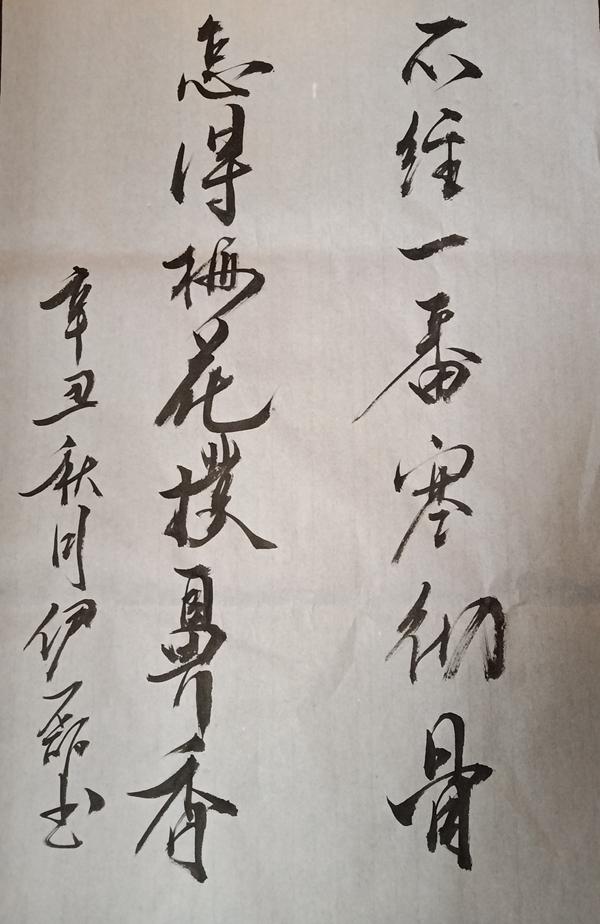 不經一番寒彻骨
怎得梅花撲鼻香
辛丑秋月伊磊书